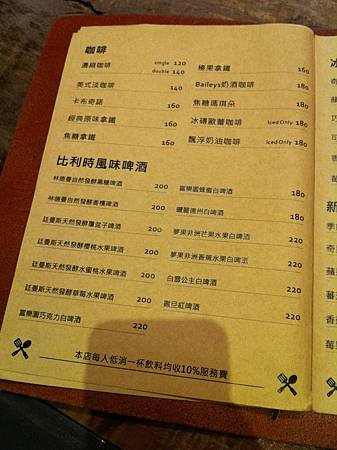 咖啡
濃縮咖啡 single 120
double 140
美式淡咖啡 140
卡布奇諾 160
經典原味拿鐵 160
焦糖拿鐵 160
榛果拿鐵 160
Baileys奶酒咖啡 180
焦糖瑪琪朵 180
冰磚歐蕾咖啡 Iced Only 180
飄浮奶油咖啡 Iced Only 180
比利時風味啤酒
林德曼自然發酵黑糖啤酒 200
林德曼自然發酵香檳啤酒 200
廷曼斯天然發酵覆盆子啤酒 200
廷曼斯天然發酵櫻桃水果啤酒 200
廷曼斯天然發酵水蜜桃水果啤酒 200
廷曼斯天然發酵草莓水果啤酒 200
富樂園巧克力白啤酒 220
富樂園蜂蜜白啤酒 180
暖麗德州白啤酒 180
夢果非洲芒果水果白啤酒 220
夢果非洲香蕉水果白啤酒 220
白雪公主白啤酒 220
撒旦紅啤酒 220
本店每人低消一杯飲料均收10%服務費
冰
奇
新
季
奇
蘋
蕃
香
莓